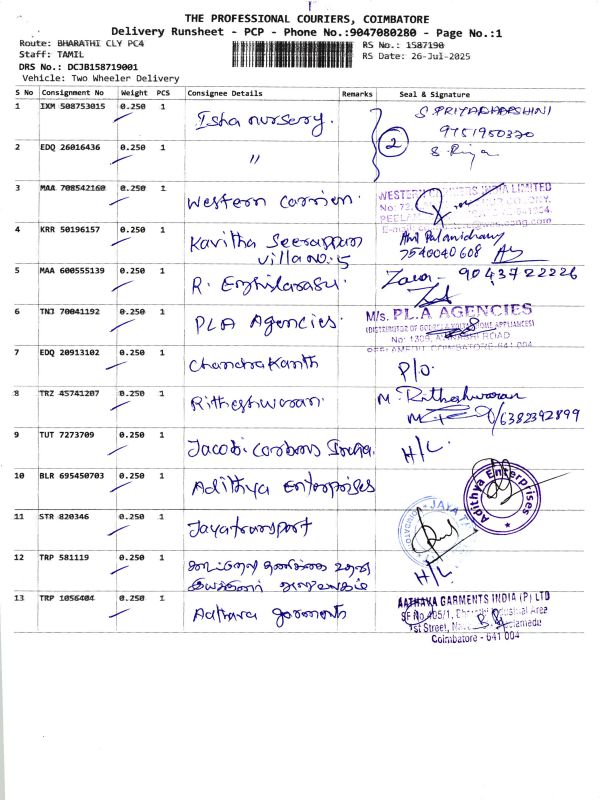 THE PROFESSIONAL COURIERS, COIMBATORE
Delivery Runsheet - PCP - Phone No.:9047080280 - Page No.:1
Route: BHARATHI CLY PC4
RS No.: 1587190
Staff: TAMIL
RS Date: 26-Jul-2025
DRS No.: DCJB158719001
Vehicle: Two Wheeler Delivery
S No Consignment No Weight PCS Consignee Details Remarks Seal & Signature
1 IXM 508753015 0.250 1 Isha nursery. S. PRIYADHARSHINI
9751950320
2 EDQ 26016436 0.250 1 〃 2 S. Priya
3 MAA 708542160 0.250 1 Western carrier. WESTERN CARRIERS INDIA LIMITED
4 KRR 50196157 0.250 1 Kavitha Seerappan
villa no. 5 7540040608
5 MAA 600555139 0.250 1 R. Ezhilarasu. 9043722226
6 TNJ 70041192 0.250 1 PLA Agencies. M/s. PL.A AGENCIES
No: 1309, ROAD
PEELAMEDU, COIMBATORE-641 004
7 EDQ 20913102 0.250 1 Chandrakanth P/O.
8 TRZ 45741207 0.250 1 Ritheshwaran. M. Ritheshwaran
6382392899
9 TUT 7273709 0.250 1 Jacobi carbons India. H/L.
10 BLR 695450703 0.250 1 Adithya Enterprises Adithya Enterprises
11 STR 820346 0.250 1 Jayatransport JAYA
12 TRP 581119 0.250 1 H/L
13 TRP 1056404 0.250 1 Aathava garments AATHAVA GARMENTS INDIA (P) LTD
SF No.405/1, Industrial Area
1st Street,
Coimbatore - 641 004